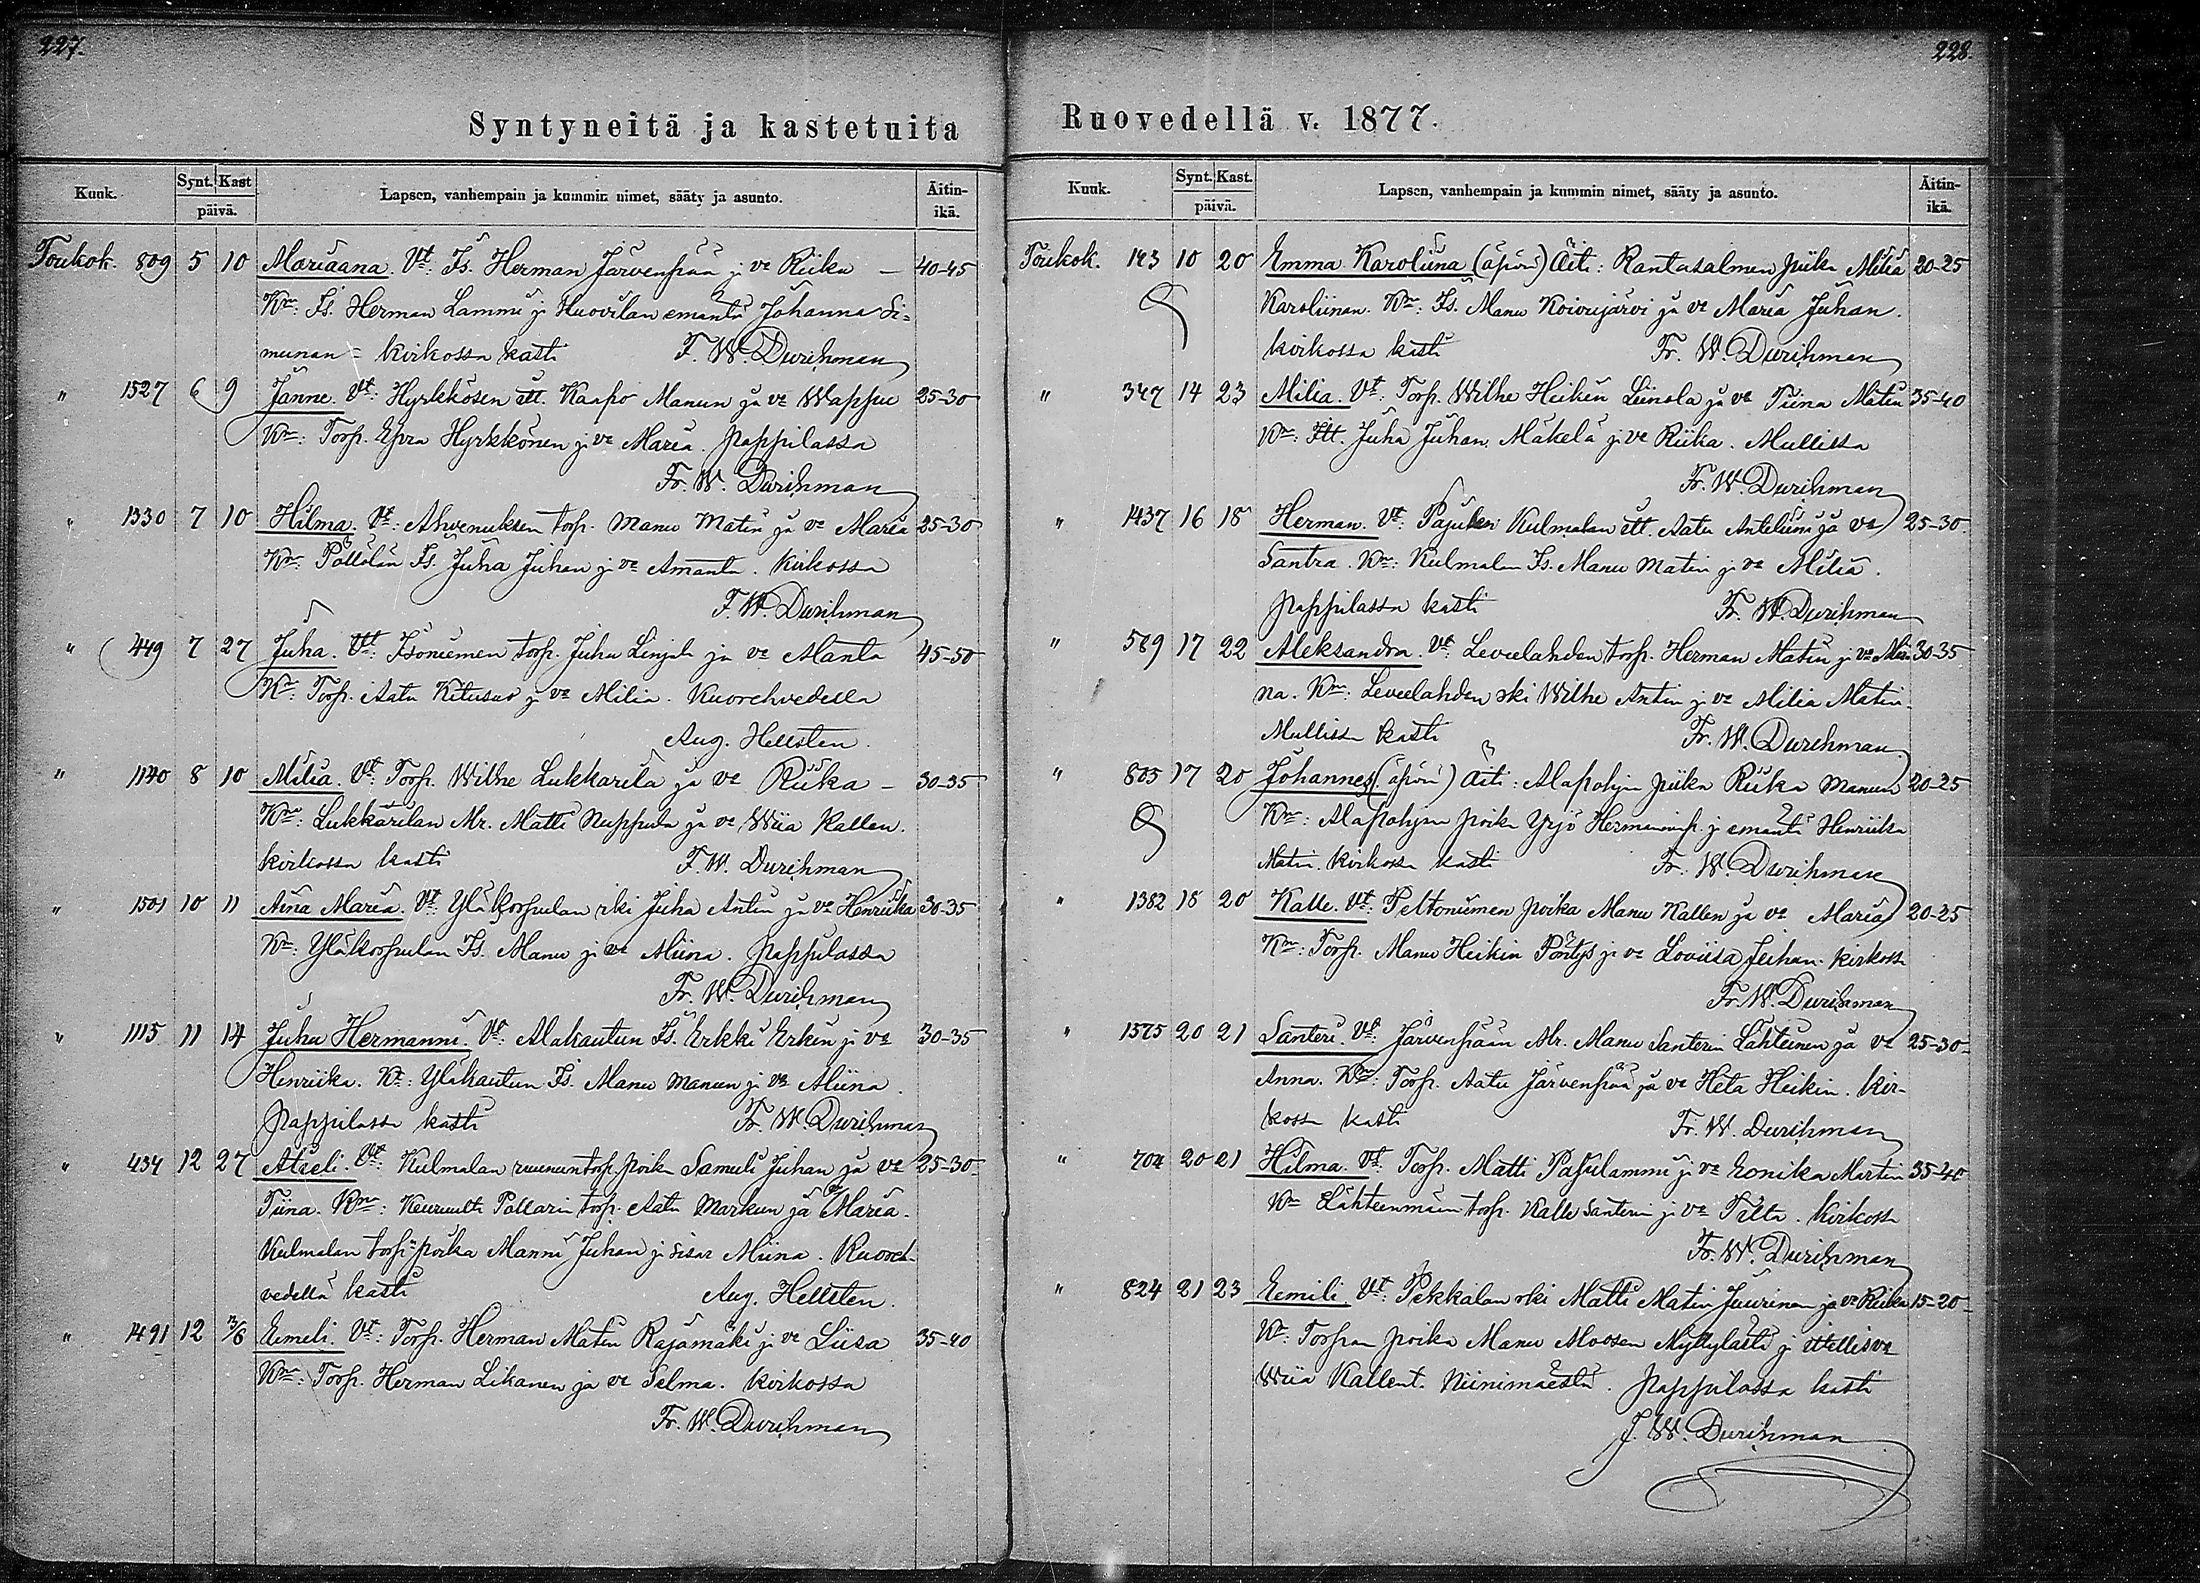 227.
Syntyneitä ja kastetuita
Kuuk. Synt. Kast päivä. Lapsen, vanhempain ja kummin nimet, sääty ja asunto. Äitin-ikä.
Toukok. 809 5 10 Mariaana. Vt: Is. Herman Järvenpää j. vo Riika — 40-45
Km: Is. Herman Lammi j. Huovilan emäntä Johanna Si=
munan = kirkossa kasti F. W. Durchman
" 1527 6 9 Janne. Vt: Hyrkkösen itt. Kaapo Manun ja vo Wappu 25-30
Km: Torp. Epra Hyrkkönen j. vo Maria. pappilassa
Fr. W. Durchman
" 1330 7 10 Hilma. Vt: Ahvenuksen torp. Manu Matin ja vo Maria 25-30
Km: Pöllölän Is. Juha Juhan j. vo Amanta. Kirkossa
F. W. Durchman
" 449 7 27 Juha. Vt: Isoniemen torp. Juha Linjala ja vo Manta 45-50
Km: Torp. Aatu Kitusuo j. vo Milia. Kuorehvedellä
Aug. Hellsten.
" 1140 8 10 Milia. Vt: Torp. Wilhe Lukkarila ja vo Riika — 30-35
Km: Lukkarilan Mr. Matti Nuppula ja vo Wiia Kallen.
kirkossa kasti F. W. Durchman
" 1501 10 11 Aina Maria. Vt: Yläkorpulan rki Juha Antin ja vo Henriika 30-35
Km: Yläkorpulan Is. Manu j. vo Miina. pappilassa
Fr. W. Durchman
" 1115 11 14 Juha Hermanni. Vt: Alakautun Is. Erkki Erkin j. vo 30-35
Henriika. Km: Yläkautun Is. Manu Manun j. vo Miina.
pappilassa kasti Fr. W. Durchman
" 434 12 27 Akseli. Vt: Kulmalan ruununtorp. poika Samuli Juhan ja vo 25-30
Tiina. Km: Keuruulta Pollarin torp. Aatu Markun ja vo Maria.
Kulmalan torp. poika Manni Juhan j. sisar Miina. Kuoreh-
vedellä kasti Aug. Hellsten.
" 1491 12 3/6 Eemeli. Vt: Torp. Herman Matin Rajamäki j. vo Liisa 35-40
Km: Torp. Herman Likanen ja vo Selma. kirkossa
Fr. W. Durchman
228.
Ruovedellä v. 1877.
Kuuk. Synt. Kast. päivä. Lapsen, vanhempain ja kummin nimet, sääty ja asunto. Äitin-ikä.
Toukok. 193 10 20 Emma Karoliina (äpärä) Äiti: Rantasalmen piika Milia 20-25
Karoliinan. Km: Is. Manu Koivujärvi ja vo Maria Juhan.
kirkossa kasti Fr. W. Durchman
" 347 14 23 Milia. Vt: Torp. Wilhe Heikin Liinola ja vo Tiina Matin 35-40
Km: Itt. Juha Juhan Mäkelä j. vo Riika. Mullissa
Fr. W. Durchman
" 1437 16 18 Herman. Vt: Pajulan Kulmalan itt. Aatu Anteliinin ja vo 25-30.
Santra. Km: Kulmalan Is. Manu Matin j. vo Milia.
pappilassa kasti Fr. W. Durchman
" 589 17 22 Aleksandra. Vt: Levielahden torp. Herman Matin j. vo Mii- 30-35
na. Km: Levielahden rki Wilhe Antin j. vo Milia Matin.
Mullissa kasti Fr. W. Durchman
" 805 17 20 Johannes (äpärä) Äiti: Alapohjan piika Riika Manun 20-25
Km: Alapohjan poika Yrjö Hermanninp. j. emäntä Henriika
Matin. Kirkossa kasti Fr. W. Durchman
" 1382 18 20 Kalle. Vt: Peltoniemen poika Manu Kallen ja vo Maria 20-25
Km: Torp. Manu Heikin Pöntys j. vo Loviisa Juhan. kirkossa
Fr. W. Durchman
" 1575 20 21 Santeri. Vt: Järvenpään Mr. Manu Santerin Lähteinen ja vo 25-30
Anna. Km: Torp. Aatu Järvenpää ja vo Heta Heikin. Kir-
kossa kasti Fr. W. Durchman
" 704 20 21 Hilma. Vt: Torp. Matti Pajulammi j. vo Eonika Martin 35-40
Km Lähteenmäen torp. Kalle Santerin j. vo Tilta. Kirkossa
Fr. W. Durchman
" 824 21 23 Eemili. Vt: Pekkalan rki Matti Matin Juurinen ja vo Riika 15-20
Km: Torpan poika Manu Moosen Myllylästä j. ittellisvo
Wiia Kallent. Niinimäestä. pappilassa kasti
F. W. Durchman